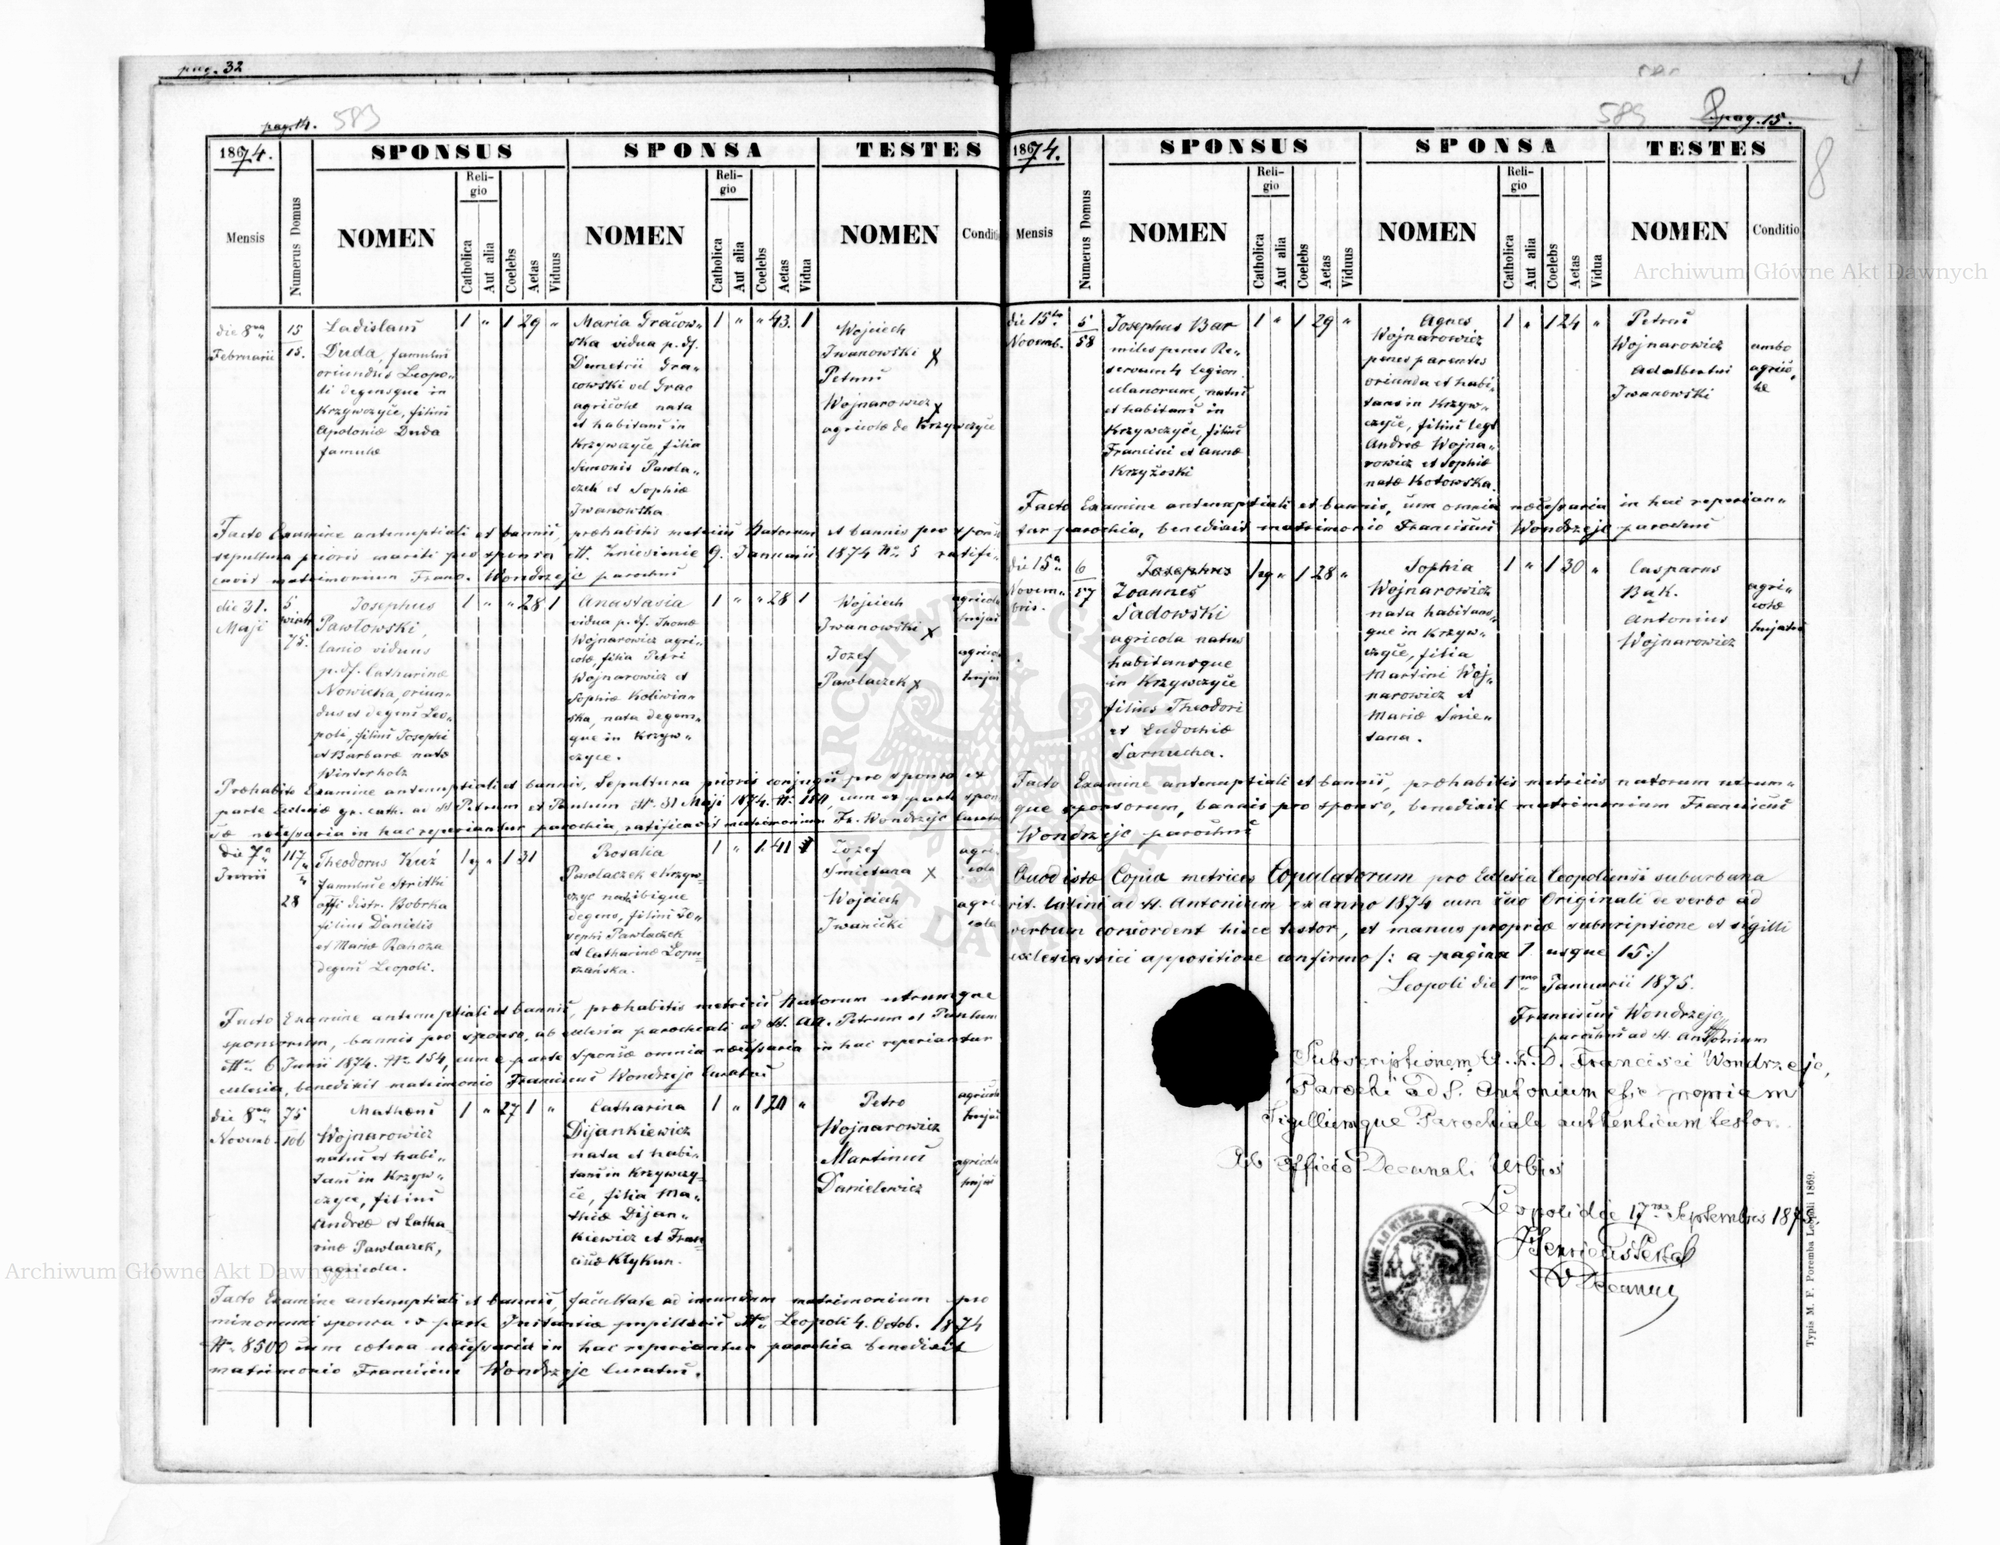 pag. 32
pag. 14.
583
1874.
SPONSUS
SPONSA
TESTES
Mensis
Numerus Domus
NOMEN
Religio
Catholica
Aut alia
Coelebs
Aetas
Viduus
NOMEN
Religio
Catholica
Aut alia
Coelebs
Aetas
Vidua
NOMEN
Conditio
die 8va
Februarii
15
15.
Ladislaus
Duda, famulus
oriundus Leopo-
li degensque in
Krzywczyce, filius
Apoloniæ Duda
famulæ
1 " 1 29 "
Maria Gracow-
ska vidua p. df.
Demetrii Gra-
cowski vel Grac
agricolæ nata
et habitans in
Krzywczyce, filia
Simonis Pawla-
czek et Sophiæ
Iwanowska
1 " " 43. 1
Wojciech
Iwanowski x
Petrus
Wojnarowicz x
agricolæ de Krzywczyce
Facto Examine antenuptiali et bannis, præhabitis metricis Natorum et bannis pro sponso
sepultura prioris mariti pro sponsa dto. Zniesienie 9. Januarii 1874 No. 5 ratifi-
cavit matrimonium Franc. Wondrzejc parochus
die 31.
Maji
5
75.
Josephus
Pawłowski,
lanio viduus
p. df. Catharinæ
Nowicka, oriun-
dus et degens Leo-
poli, filius Josephi
et Barbaræ natæ
Winterholz
1 " " 28 1
Anastasia
vidua p. df. Thomæ
Wojnarowicz agri-
colæ, filia Petri
Wojnarowicz et
Sophiæ Koliwin-
ska, nata degens-
que in Krzyw-
czyce.
1 " " 28 1
Wojciech
Iwanowski x
Jozef
Pawlaczek x
agricola
hujas
agrico.
hujas
Præhabito Examine antenuptiali et bannis, Sepultura prioris conjugis pro sponso ex
parte Ecclesiæ gr. cath. ad St Petrum et Paulum dto. 31 Maji 1874. No. 150, cum ex parte spon-
sæ necessaria in hac reperiantur parochia, ratificavit matrimonium Fr. Wondrzejc Curatus
die 7a
Junii
117
28
Theodorus Kuź
famulus e Stritki
offi distr. Bobrka
filius Danielis
et Mariæ Rahoza
degens Leopoli.
1 g " 1 31
Rosalia
Pawlaczek e Krzyw-
czyc nata ibique
degens, filius Jo-
sephi Pawlaczek
et Catharinæ Lopu-
szańska.
1 " 1. 41
Jozef
Śmietana x
Wojciech
Iwanicki
agri-
cola
agri-
cola
Facto Examine antenuptiali et bannis, præhabitis metricis Natorum utrumque
sponsorum, bannis pro sponso, ab ecclesia parochiali ad St. AA. Petrum et Paulum
dto. 6 Junii 1874. No. 154, cum e parte Sponsæ omnia necessaria in hac reperiantur
ecclesia, benedixit matrimonio Franciscus Wondrzejc Curatus
die 8va
Novemb.
75
106
Mathæus
Wojnarowicz
natus et habi-
tans in Krzyw-
czyce, filius
Andreæ et Catha-
rinæ Pawlaczek,
agricola.
1 " 27 1 "
Catharina
Dijankiewicz
nata et habi-
tans in Krzywczy-
ce, filia Ma-
thiæ Dijan-
kiewicz et Fran-
ciscæ Kłykun.
1 " 1 20 "
Petro
Wojnarowicz
Martinus
Danielewicz
agricola
hujas
agricola
hujas
Facto Examine antenuptiali et bannis, facultate ad ineundum matrimonium pro
minorenni sponsa ex parte Instantiæ pupillaris dto. Leopoli 4. Octob. 1874
No. 8500 cum cætera necessaria in hac reperiantur parochia benedixit
matrimonio Franciscus Wondrzejc Curatus.
585
pag. 15.
8
1874.
SPONSUS
SPONSA
TESTES
Mensis
Numerus Domus
NOMEN
Religio
Catholica
Aut alia
Coelebs
Aetas
Viduus
NOMEN
Religio
Catholica
Aut alia
Coelebs
Aetas
Vidua
NOMEN
Conditio
die 15ta
Novemb.
5
58
Josephus Bar
miles penes Re-
servam 4 Legion.
ulanorum, natus
et habitans in
Krzywczyce, filius
Francisci et Annæ
Krzyżoski
1 " 1 29 "
Agnes
Wojnarowicz
penes parentes
oriunda et habi-
tans in Krzyw-
czyce, filius legi
Andreæ Wojna-
rowicz et Sophiæ
natæ Kotowska.
1 " 1 24 "
Petrus
Wojnarowicz
Adalbertus
Iwanowski
ambo
agrico-
læ
Facto Examine antenuptiali et bannis, cum omnia necessaria in hac reperian-
tur parochia, benedixit matrimonio Franciscus Wondrzejc parochus
die 15a
Novem-
bris.
6
57
Josephus
Joannes
Sadowski
agricola natus
habitansque
in Krzywczyce
filius Theodori
et Eudochiæ
Sarnucha.
1 g " 1 28 "
Sophia
Wojnarowicz
nata habitans-
que in Krzyw-
czyce, filia
Martini Woj-
narowicz et
Mariæ Śmie-
tana.
1 " 1 30 "
Casparus
Bąk.
Antonius
Wojnarowicz
agri-
colæ
hujates
Facto Examine antenuptiali et bannis, præhabitis metricis natorum utrum-
que sponsorum, bannis pro sponso, benedixit matrimonium Franciscus
Wondrzejc parochus
Quod istæ Copia metrices Copulatorum pro Ecclesia Leopoliensi suburbana
rit. latini ad St. Antonium ex anno 1874 cum suo Originali de verbo ad
verbum concordent hisce testor, et manus propriæ subscriptione et sigilli
ecclesiastici appositione confirmo /: a pagina 1 usque 15:/
Leopoli die 1ma Januarii 1875.
Franciscus Wondrzejc
parochus ad St. Antonium
Subscriptionem A. R. D. Francisci Wondrzejc,
Parochi ad S. Antonium esse propriam
Sigillumque Parochiale authenticum testor.
Ab Officio Decanali Urbis
Leopoli die 17ma Septembris 1875.
Decanus
Typis M. F. Poremba Leopoli 1869.
Archiwum Główne Akt Dawnych
Archiwum Główne Akt Dawnych